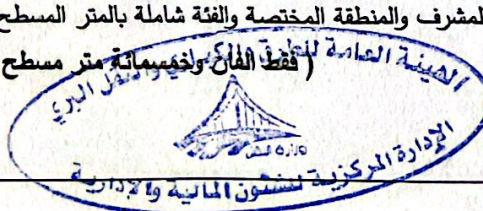 المشرف والمنطقة المختصة والفئة شاملة بالمتر المسطح
( فقط ألفان وخمسمائة متر مسطح
الهيئة العامة للطرق والكباري والنقل البري
الإدارة المركزية للشئون المالية والإدارية